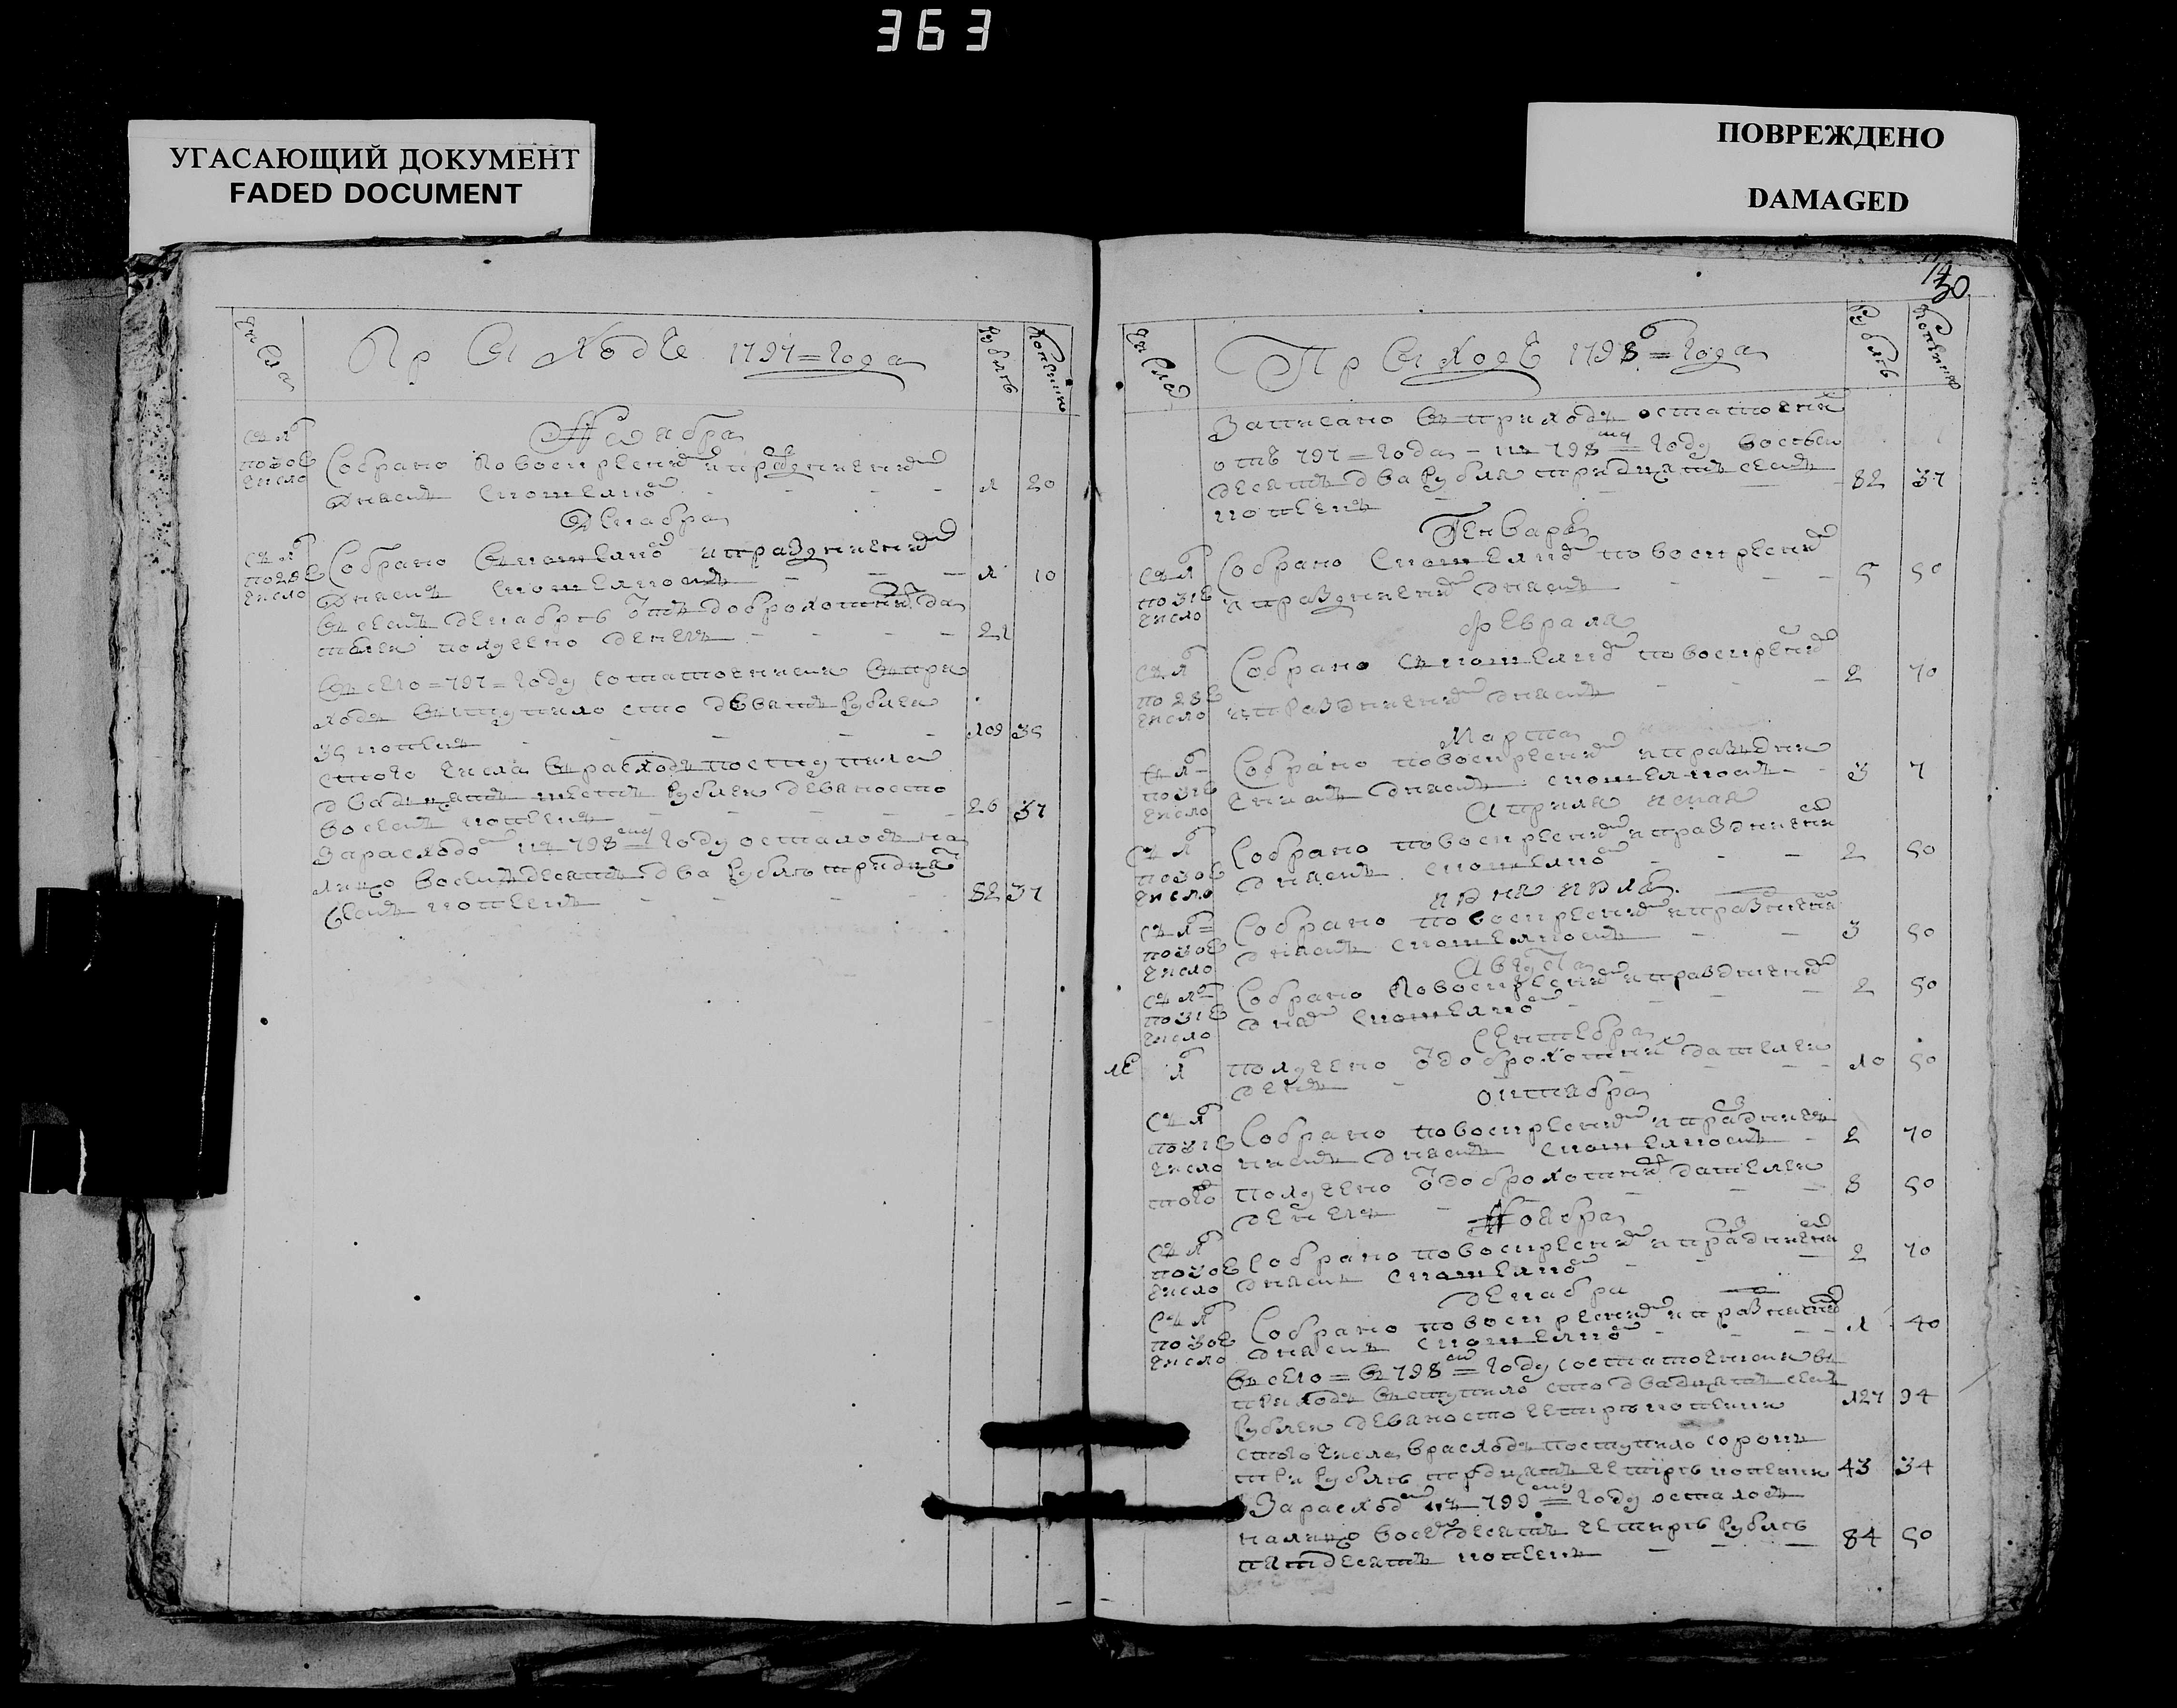 363
УГАСАЮЩИЙ ДОКУМЕНТ
FADED DOCUMENT
ПОВРЕЖДЕНО
DAMAGED
30
числа
Приходъ 1797 = года
рубли
копейки
Ноября
съ 1
по 30е
число
Собрано по воскреснымъ и празничнымъ
днямъ с кошелкомъ - - - 1 20
Декабря
съ 1
по 29е
число
Собрано въ кошелкомъ и праздничнымъ
днямъ кошелкомъ - - - 1 10
въ семъ декабрѣ отъ доброхотныхъ да
телей получено денегъ - - - 21
въ сего = 797 = году состаточными въ при
ходъ вступило сто девять рублей
35 копеекъ - - - 109 35
с того числа въ расходъ поступило
двадцать шесть рублей девяносто
восемь копеекъ - - - 26 37
За расходомъ къ 798му году осталось на
лицо восемдесятъ два рубли тридца
семь копеекъ - - - 82 37
числа
Приходъ 1798 = года
рубли
копейки
Записано въ приходъ остаточныхъ
отъ 797 = года - къ 798му = году восем
десятъ два рубля тридцать семь 82 37
копеекъ
Генваря
съ 1
по 31е
число
Собрано с кошелкомъ по воскреснымъ 5 50
и праздничнымъ днямъ - - -
Февраля
съ 1
по 28е
число
Собрано съ кошелкомъ по воскреснымъ 2 70
и праздничнымъ днямъ - - -
Марта
съ 1
по 31е
число
Собрано по воскреснымъ и праздни
чнымъ днямъ с кошелкомъ - 3 7
Априля и мая
съ 1
по 30е
число
Собрано по воскреснымъ и праздничнымъ
днямъ с кошелкомъ - - - 2 50
июня июля
съ 1
по 30е
число
Собрано по воскреснымъ и празничнымъ
днямъ с кошелкомъ - - 3 50
Августа
съ 1
по 31е
число
Собрано по воскреснымъ и праздничнымъ 2 50
днямъ с кошелкомъ - - -
Сентебря
1 получено от доброхотныхъ дателей 10 50
денегъ -
октября
съ 1
по 31е
число
Собрано по воскреснымъ и праздничъ
нымъ днямъ с кошелкомъ - 2 70
того получено от доброхотныхъ дателей 8 50
денегъ -
Ноября
съ 1
по 30е
число
Собрано по воскреснымъ и праздничнымъ 2 70
днямъ с кошелкомъ -
декабря
съ 1
по 30е
число
Собрано по воскреснымъ и празничнымъ 1 40
днямъ с кошелкомъ - - -
въ сего = въ 798мъ = году состаточными въ
приходъ въступило сто двадцать семь 127 94
рублей девяносто четыре копейки
с того числа в расходъ поступило сорокъ
три рубли тридцать четыре копейки 43 34
За расходомъ къ 799му = году осталось
на лицо восемдесятъ четыре рубли 84 50
пятдесятъ копеекъ - - -